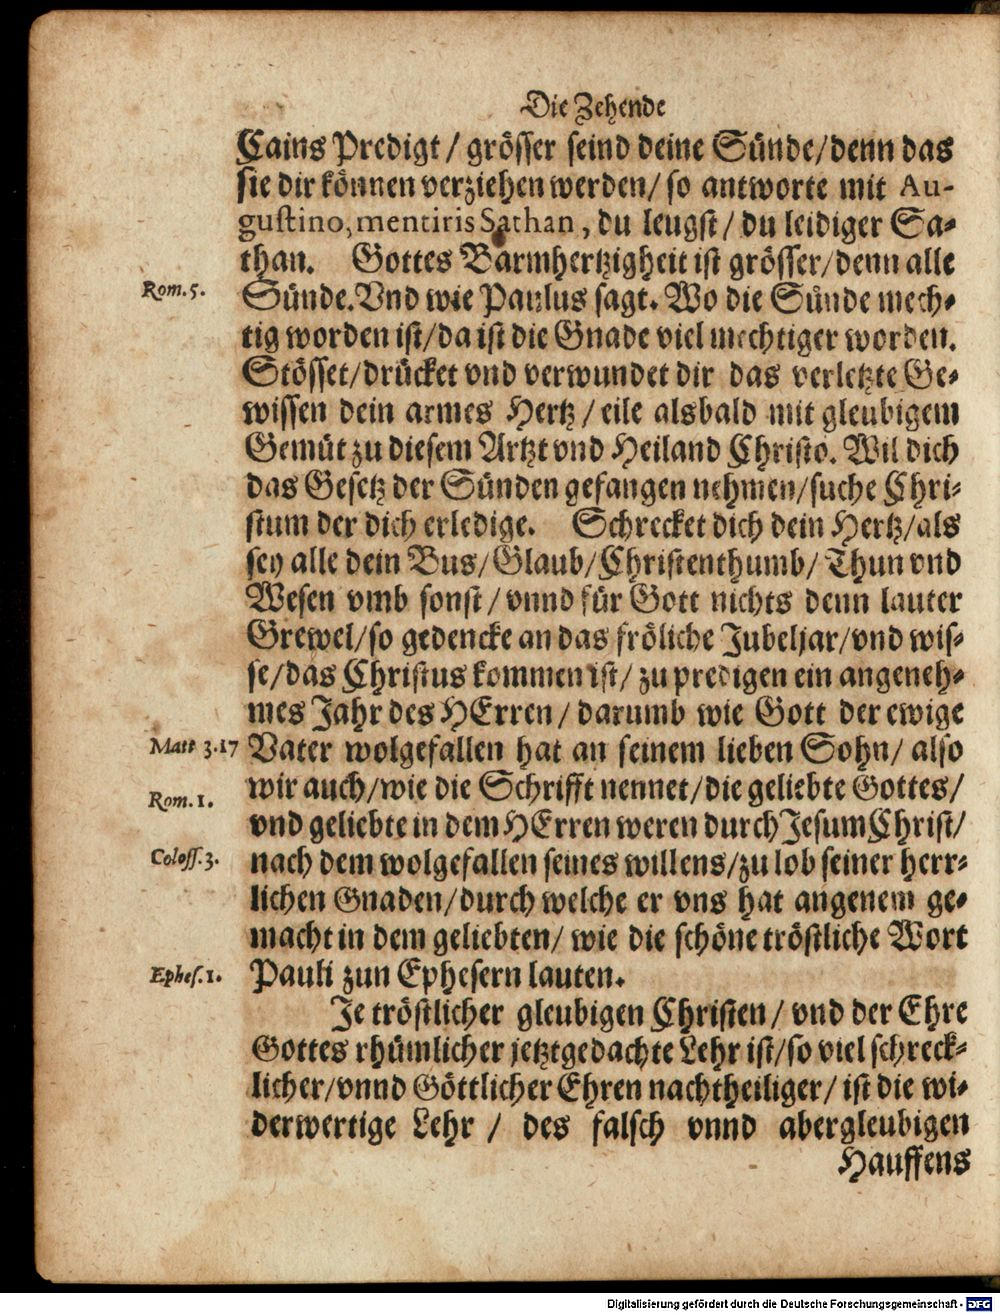 Die Zehende
Cains Predigt / grösser seind deine Sünde/denn das
sie dir können verziehen werden/ so antworte mit Au-
gustino, mentiris Sathan, du leugst/ du leidiger Sa-
than. Gottes Barmhertzigheit ist grösser/denn alle
Rom. 5. Sünde. Vnd wie Paulus sagt. Wo die Sünde mech-
tig worden ist/da ist die Gnade viel mechtiger worden.
Stösset/drücket vnd verwundet dir das verletzte Ge-
wissen dein armes Hertz / eile alsbald mit gleubigem
Gemüt zu diesem Artzt vnd Heiland Christo. Wil dich
das Gesetz der Sünden gefangen nehmen/suche Chri-
stum der dich erledige. Schrecket dich dein Hertz/als
sey alle dein Bus/Glaub/Christenthumb/ Thun vnd
Wesen vmb sonst / vnnd für Gott nichts denn lauter
Grewel/so gedencke an das fröliche Jubeljar/vnd wis-
se/das Christus kommen ist/ zu predigen ein angeneh-
mes Jahr des HErren / darumb wie Gott der ewige
Matt 3.17 Vater wolgefallen hat an seinem lieben Sohn/ also
wir auch/wie die Schrifft nennet/die geliebte Gottes/
Rom. 1.
vnd geliebte in dem HErren weren durch Jesum Christ/
Coloss. 3. nach dem wolgefallen seines willens/zu lob seiner herr-
lichen Gnaden/durch welche er vns hat angenem ge-
macht in dem geliebten/ wie die schöne tröstliche Wort
Ephes. 1. Pauli zun Ephesern lauten.
Je tröstlicher gleubigen Christen / vnd der Ehre
Gottes rhümlicher jetztgedachte Lehr ist/so viel schreck-
licher/vnnd Göttlicher Ehren nachtheiliger/ ist die wi-
derwertige Lehr / des falsch vnnd abergleubigen
Hauffens
Digitalisierung gefördert durch die Deutsche Forschungsgemeinschaft - DFG